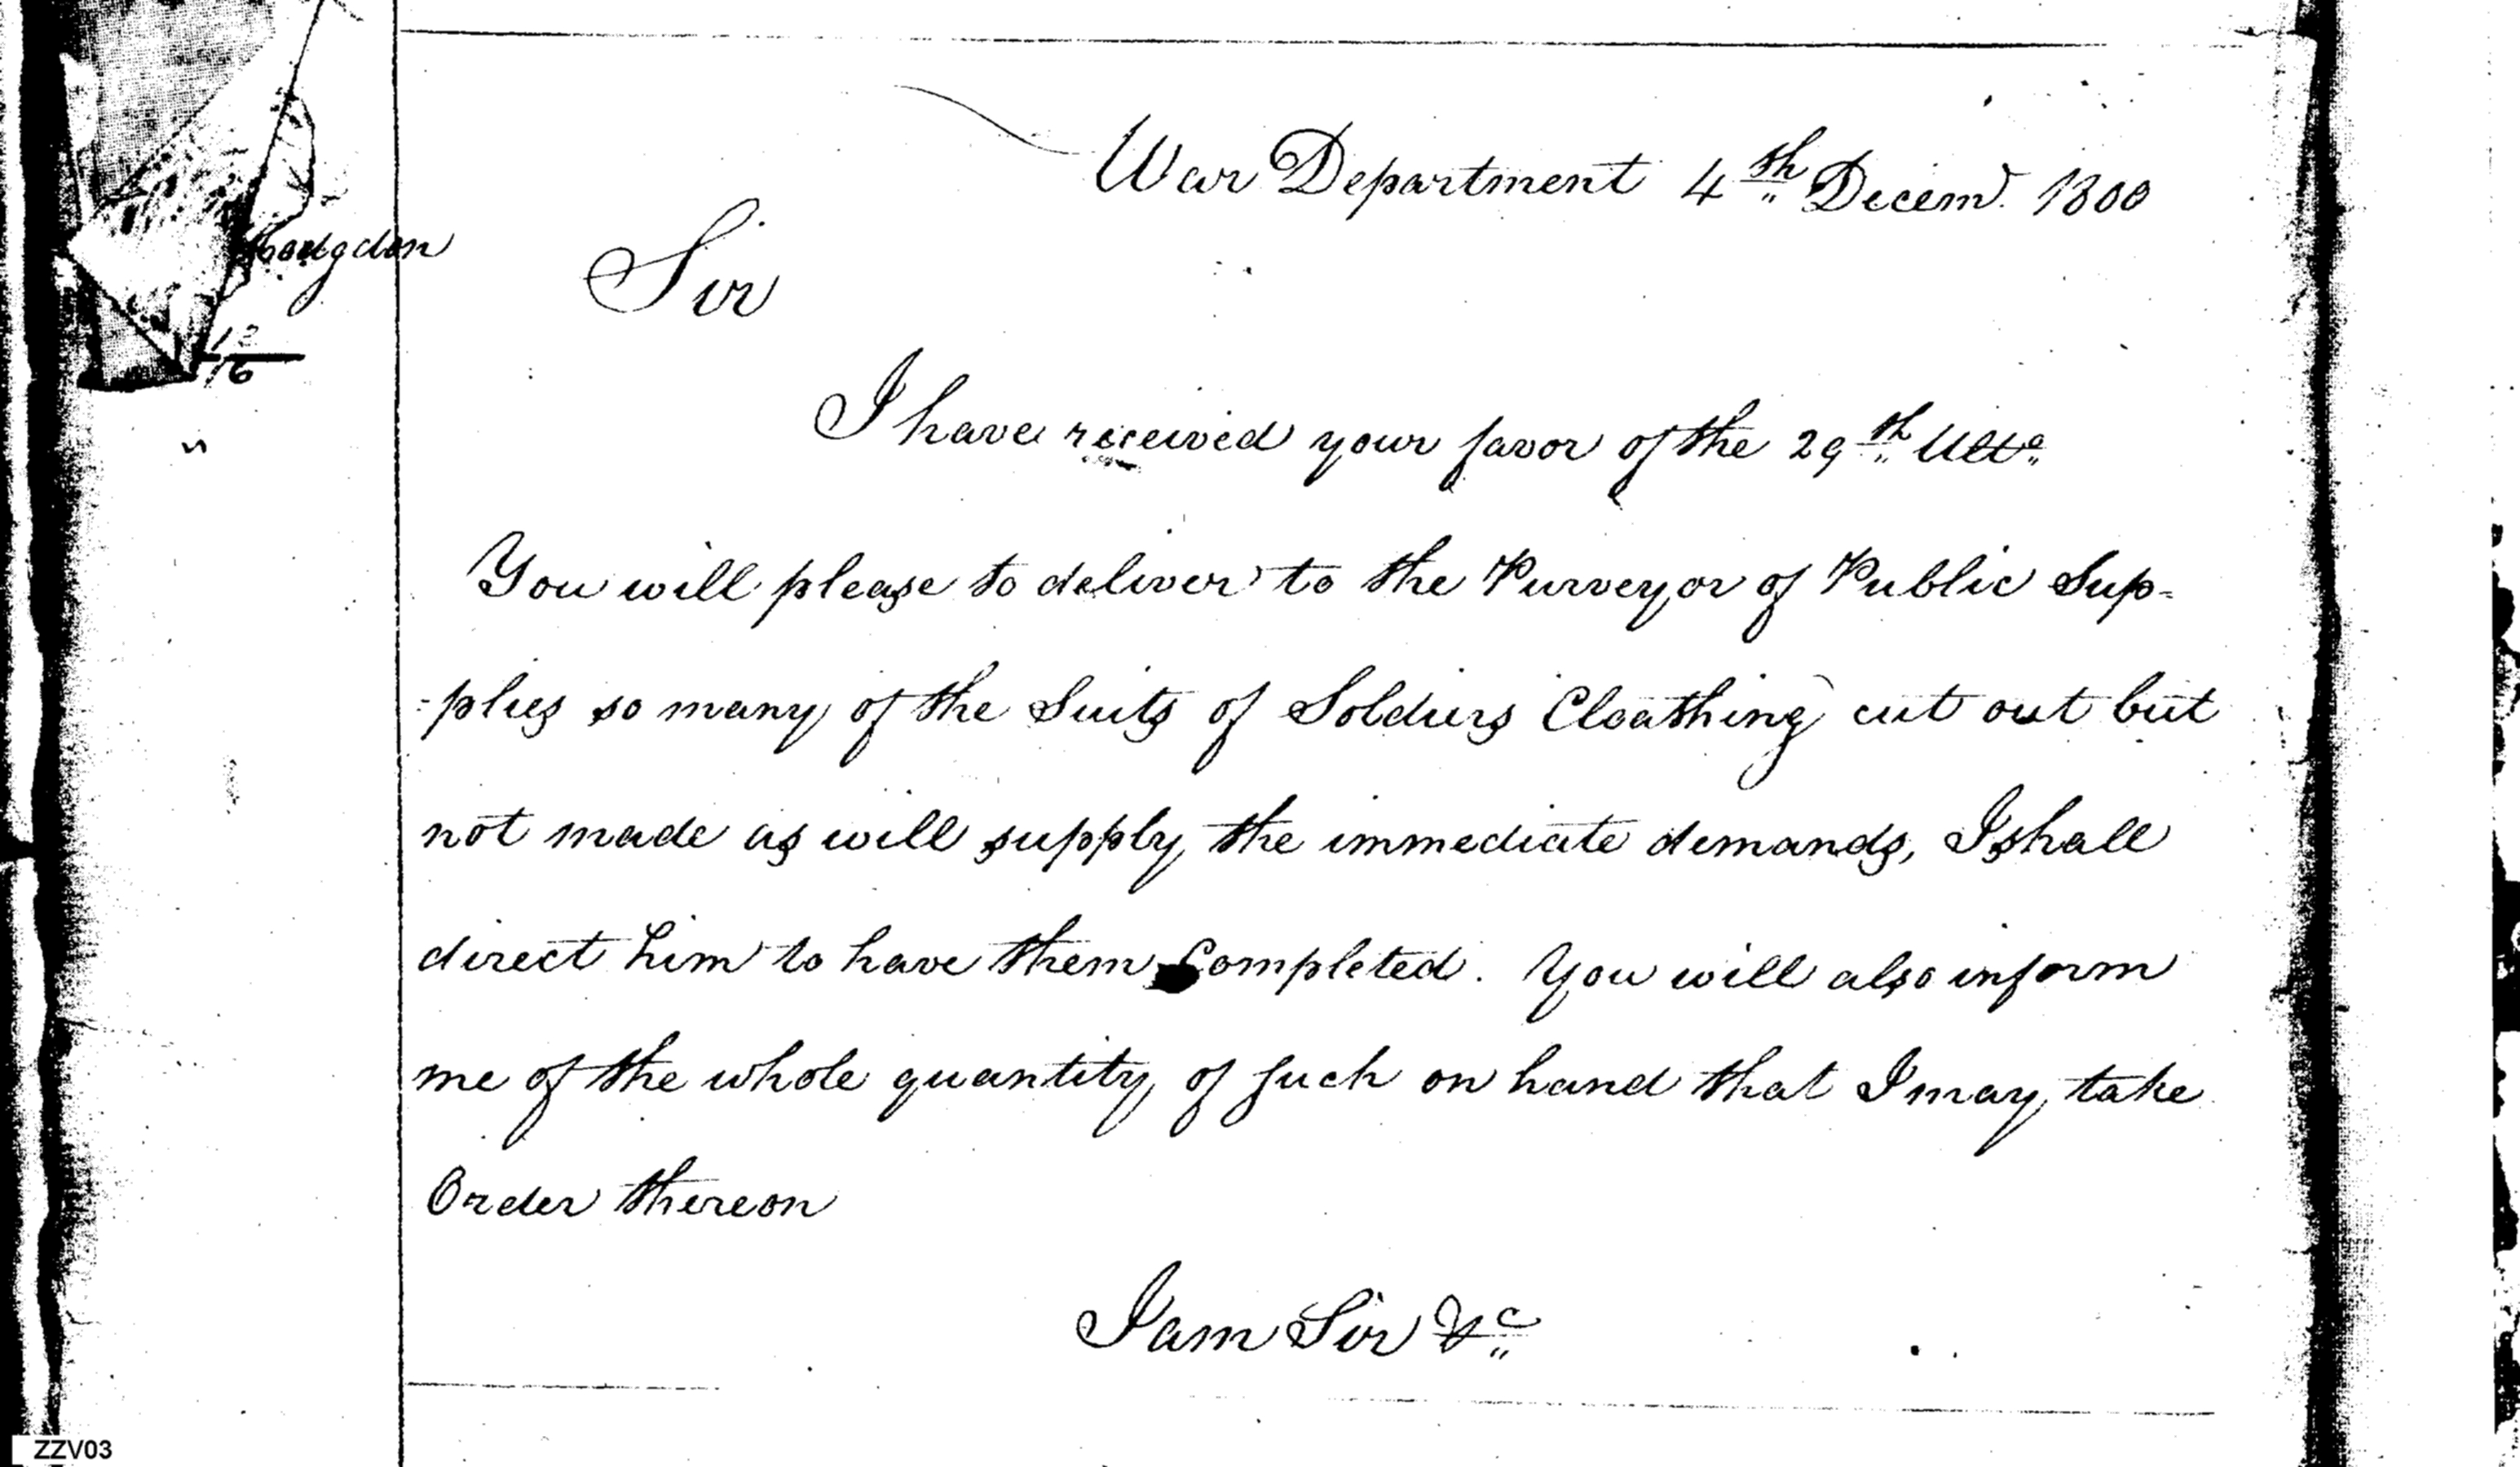 War Department 4th Decemr. 1800
Hodgdon
Sir
12
16
I have received your favor of the 29th Ulto.
You will please to deliver to the Purveyor of Public Sup-
-plies so many of the Suits of Soldiers Cloathing cut out but
not made as will supply the immediate demands, I shall
direct him to have them Completed. You will also inform
me of the whole quantity of such on hand that I may take
Order thereon
I am Sir &c
ZZV03